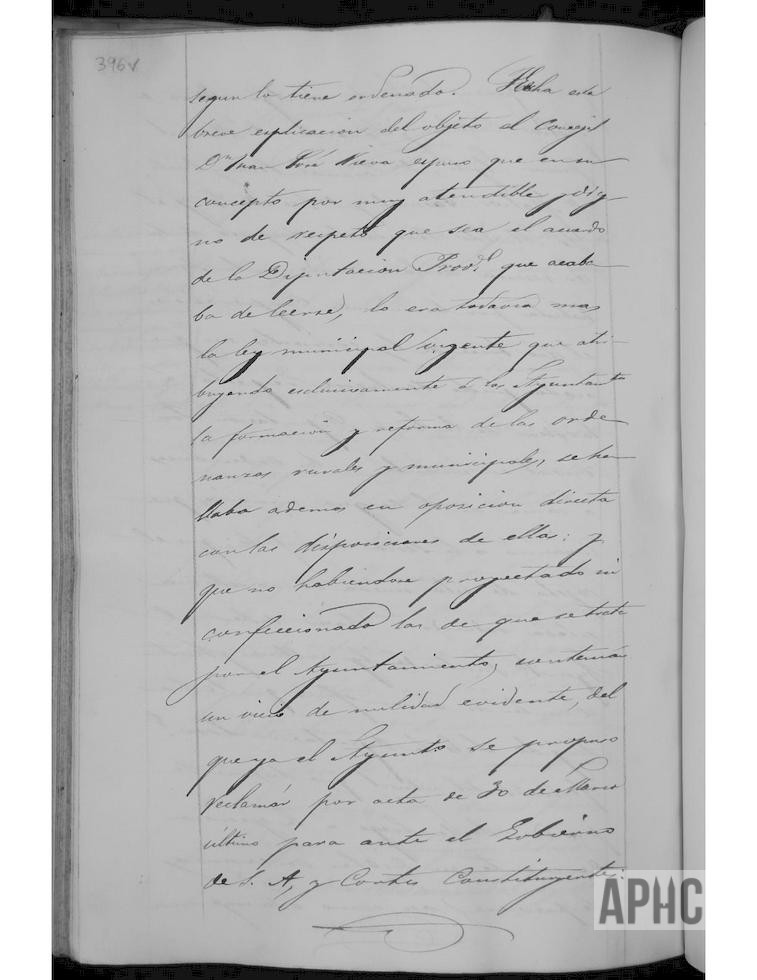 396v
segun lo tiene ordenado. Hecha esta
breve esplicacion del objeto el Concejal
Dn Juan José Nieva espuso que en su
concepto por muy atendible y dig-
no de respeto que sea el acuerdo
de la Diputacion Provl. que acaba-
ba de leerse, lo era todavia mas
la ley municipal vigente que atri-
buyendo esclusivamente á los Ayuntamtos
la formacion y reforma de las orde
nanzas rurales y municipales, se ha-
llaba ademas en oposicion directa
con las disposiciones de ellas; y
que no habiendose proyectado ni
confeccionado las de que se trata
por el Ayuntamiento, contenian
un vicio de nulidad evidente, del
que ya el Ayunto. se propuso
reclamar por acta de 30 de Marzo
último para ante el Gobierno
de S. A, y Cortes Constituyentes.
APHC